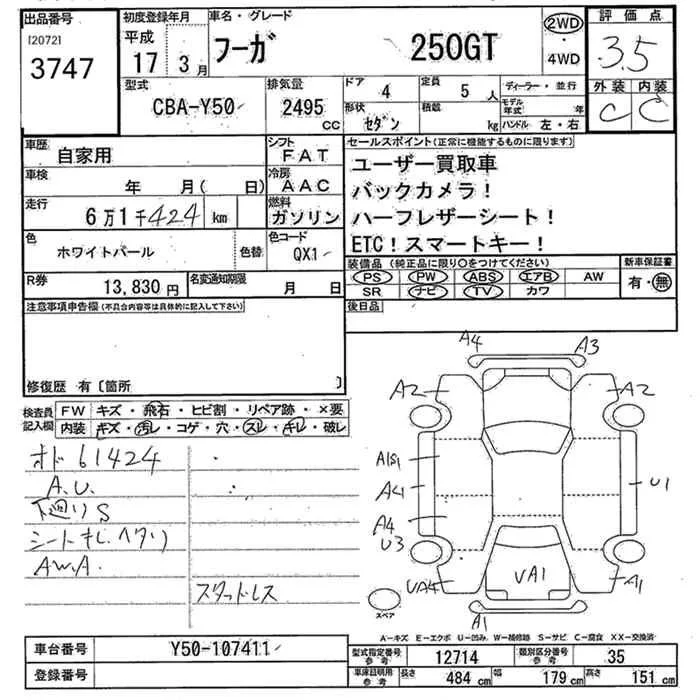 出品番号
[20721
3747
初度登録年月
平成
17年 3月
車名・グレード
フーガ 250GT
2WD
・
4WD
評価点
3.5
外装 内装
C C
型式
CBA-Y50
排気量
2495 CC
ドア 4
形状 セダン
定員 5 人
積載 kg
ディーラー・並行
モデル年式 年
ハンドル 左・右
車歴 自家用
車検 年 月( 日)
走行 6万1千424 km
色 ホワイトパール 色替
シフト FAT
冷房 AAC
燃料 ガソリン
色コード QX1
R券 13,830円
名変通知期限 月 日
セールスポイント(正常に機能するものに限ります)
ユーザー買取車
バックカメラ!
ハーフレザーシート!
ETC!スマートキー!
装備品(純正品に限り○をつけてください)
PS PW ABS エアB AW
SR ナビ TV カワ
新車保証書
有・無
注意事項申告欄(不具合内容等は具体的に記入して下さい)
後日品
修復歴 有〔箇所 〕
検査員記入欄
FW キズ・飛石・ヒビ割・リペア跡・×要
内装 キズ・汚レ・コゲ・穴・スレ・キレ・破レ
オド 61424
A.U.
下廻りS
シートキレ ヘタリ
AW.A.
スタッドレス
A4 A3
A2 A2
A1S1
A41
A4
U3
U1
UA4 UA1 A1
A1
スペア
A-キズ E-エクボ U-凹み W-補修跡 S-サビ C-腐食 XX-交換済
車台番号 Y50-107411
登録番号
型式指定番号 参考 12714
類別区分番号 参考 35
車庫証明用 参考
長さ 484 cm 幅 179 cm 高さ 151 cm